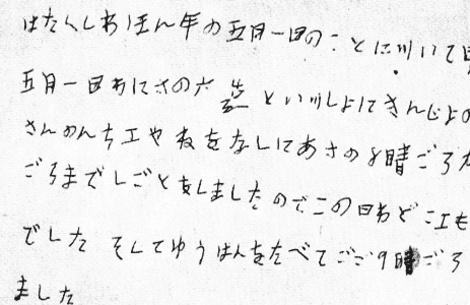 はたくしわほん年の五月一日のことに川いて
五月一日わにさの六造といいしよにきんじよの
さんのんち工やねをなしにあさの8晴ごろ
ごろまでしごとをしましたのでこの日わどこ工も
でした そしてゆうはんをたべてごご9時ごろ
ました